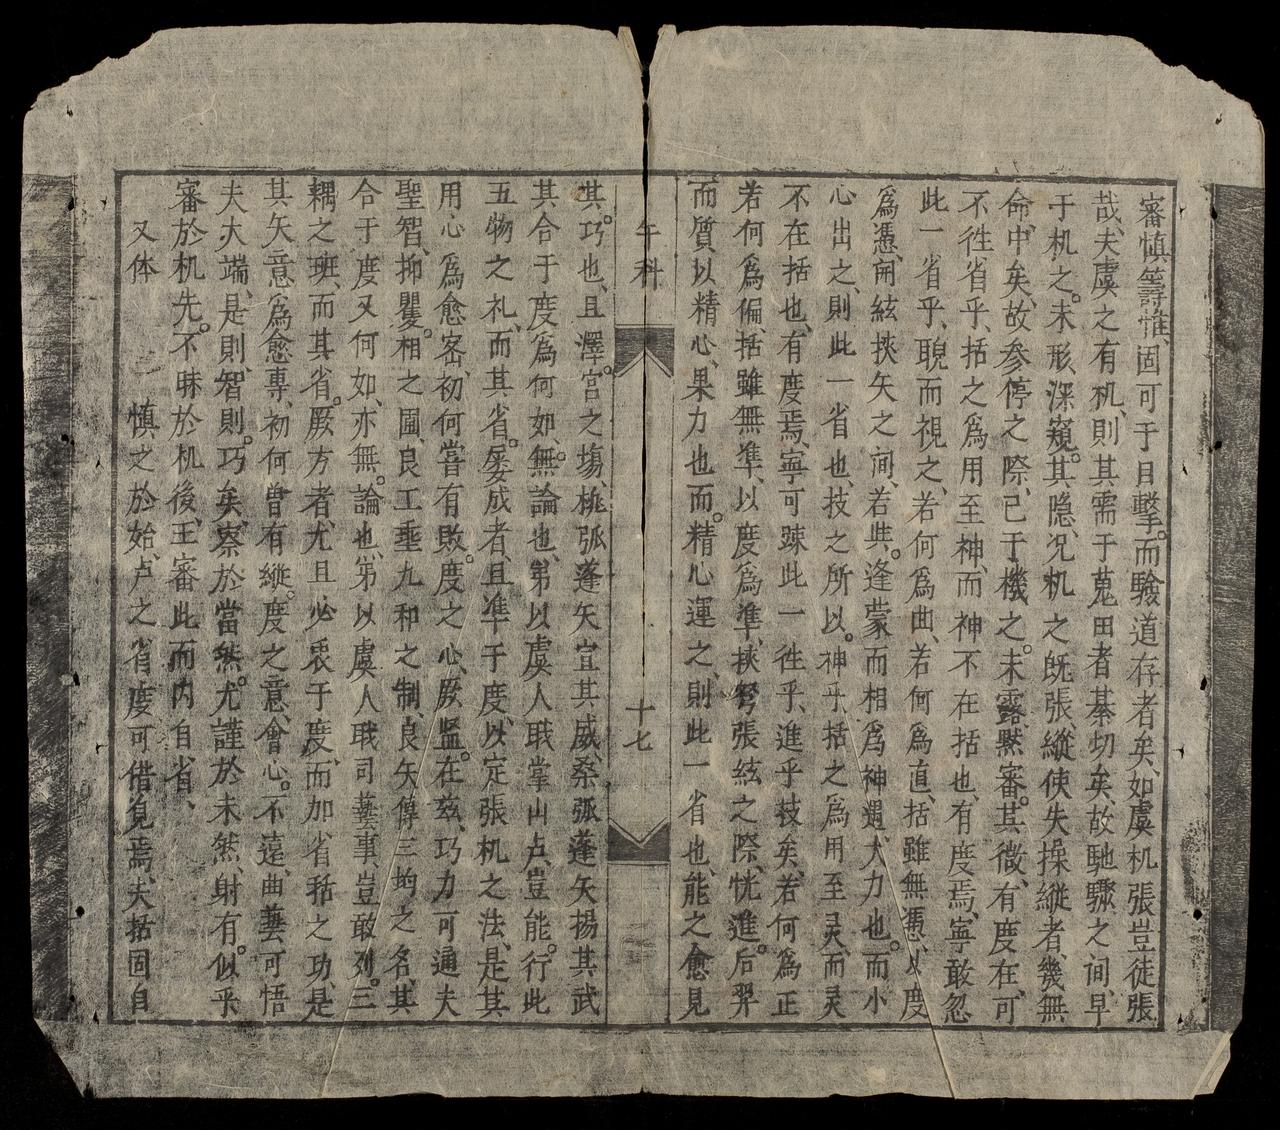 審慎籌惟、固可于目擊。而驗道存者矣、如虞机張豈徒張
哉、夫虞之有机、則其需于蒐田者綦切矣、故馳驟之间、早
于机之。未形、深窺。其隐、况机之既張、縱使失、操縱者、幾無
命、中矣、故参停之際、已于機之。未露、黙審。其微、有度在、可
不徃省乎、括之爲用至神、而神不在括也、有度焉、寧敢忽
此一省乎、睨而視之、若何爲曲、若何爲直、括雖無憑、以度
爲憑、開絃挾矢之间、若與。逢蒙而相爲神遇、大力也。而小
心出之、則此一省也、技之所以。神乎、括之爲用至灵、而灵
不在括也、有度焉、寧可踈此一徃乎、進乎技矣、若何爲正
若何爲偏、括雖無準、以度爲準、挾弩張絃之際、恍進。后羿
而質以精心、果力也而。精心運之、則此一省也、能之愈見
午科
十七
其。巧也、且澤宮。之塲、桃弧蓬矢宣其威、桑弧蓬矢揚其武
其合于度爲何如、無。論也、第以虞人職掌山占、豈能。行此
五物之礼、而其省。屡成者、且準于度、以定張机之法、是其
用心爲愈密、初何嘗有敗。度之心、厥監。在兹、巧力可通夫
聖智、抑矍。相之圃、良工垂九和之制、良矢傳三均之名、其
合于度又何如、亦無。論也、第以虞人職司藝事、豈敢列。三
耦之班、而其省。厥方者、尤且必衷于度、而加省括之功、是
其矢意爲愈專、初何曽有縱。度之意、會心。不遠、曲藝、可悟
夫大端、是則、智則。巧矣、察於當然。尤謹於未然、射有。似乎
審於机先。不昧於机後、王審此而内自省、
又体 二 慎之於始、占之省度可借覓焉、夫括固自